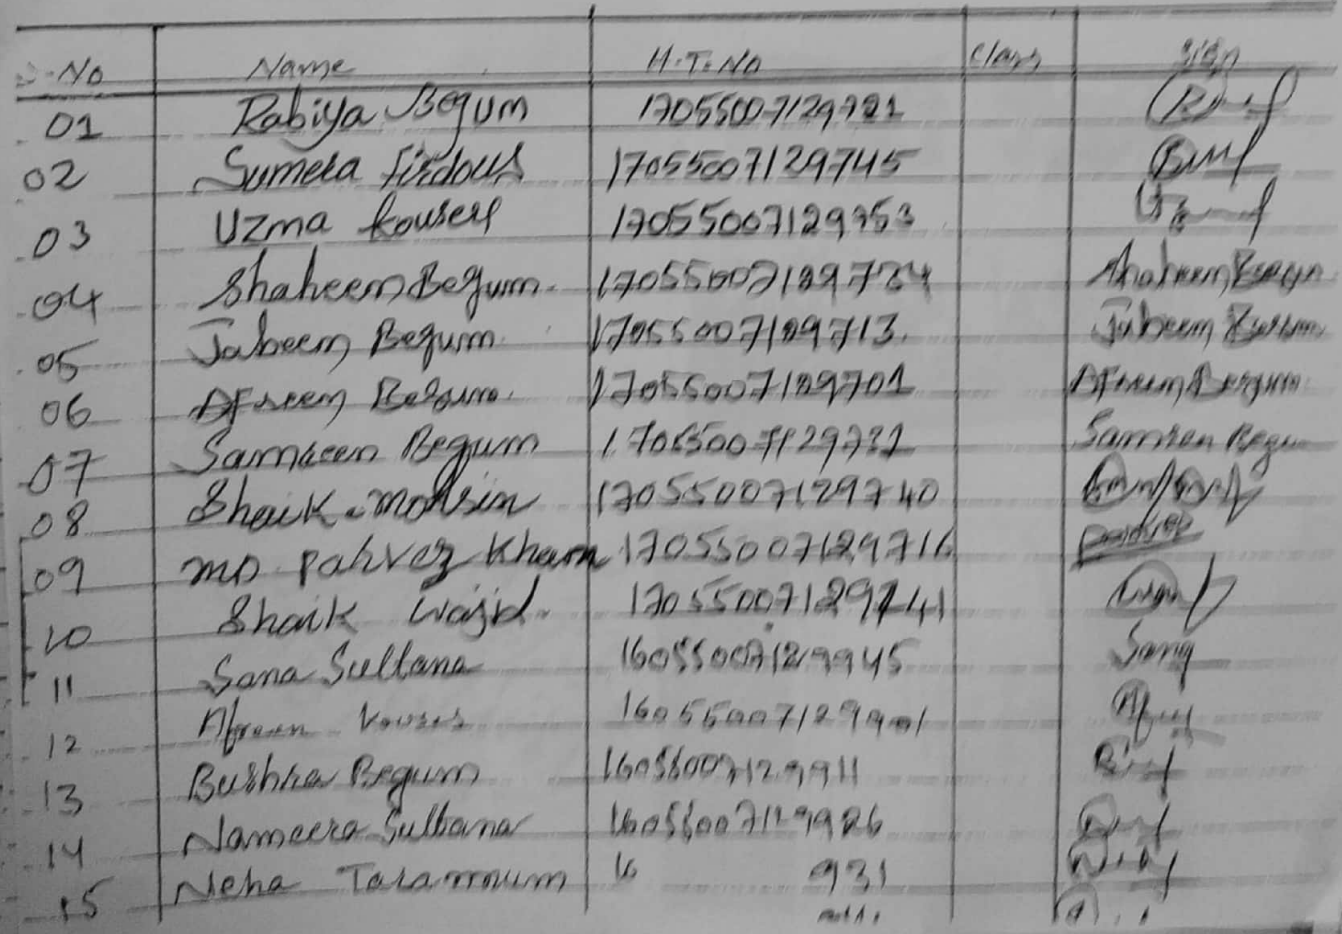 S.No Name H.T.No Class Sign
01 Rabiya Begum 17055007129721
02 Sumera Firdous 17055007129745
03 Uzma Kouser 17055007129753
04 Shaheen Begum. 17055007129734 Shaheen Begum
05 Jabeen Begum. 17055007129713. Jabeen Begum
06 Afreen Begum. 17055007129701 Afreen Begum
07 Samreen Begum 17055007129731 Samreen Begum
08 Shaik. Mohsin 17055007129740
09 MD Parvez Khan 17055007129716 parvez
10 Shaik Wajid. 17055007129741
11 Sana Sultana 16055007129945 Sana
12 Afreen Kouser 16055007129901
13 Bushra Begum 16055007129911
14 Nameera Sultana 16055007129926
15 Neha Tarannum 16 931